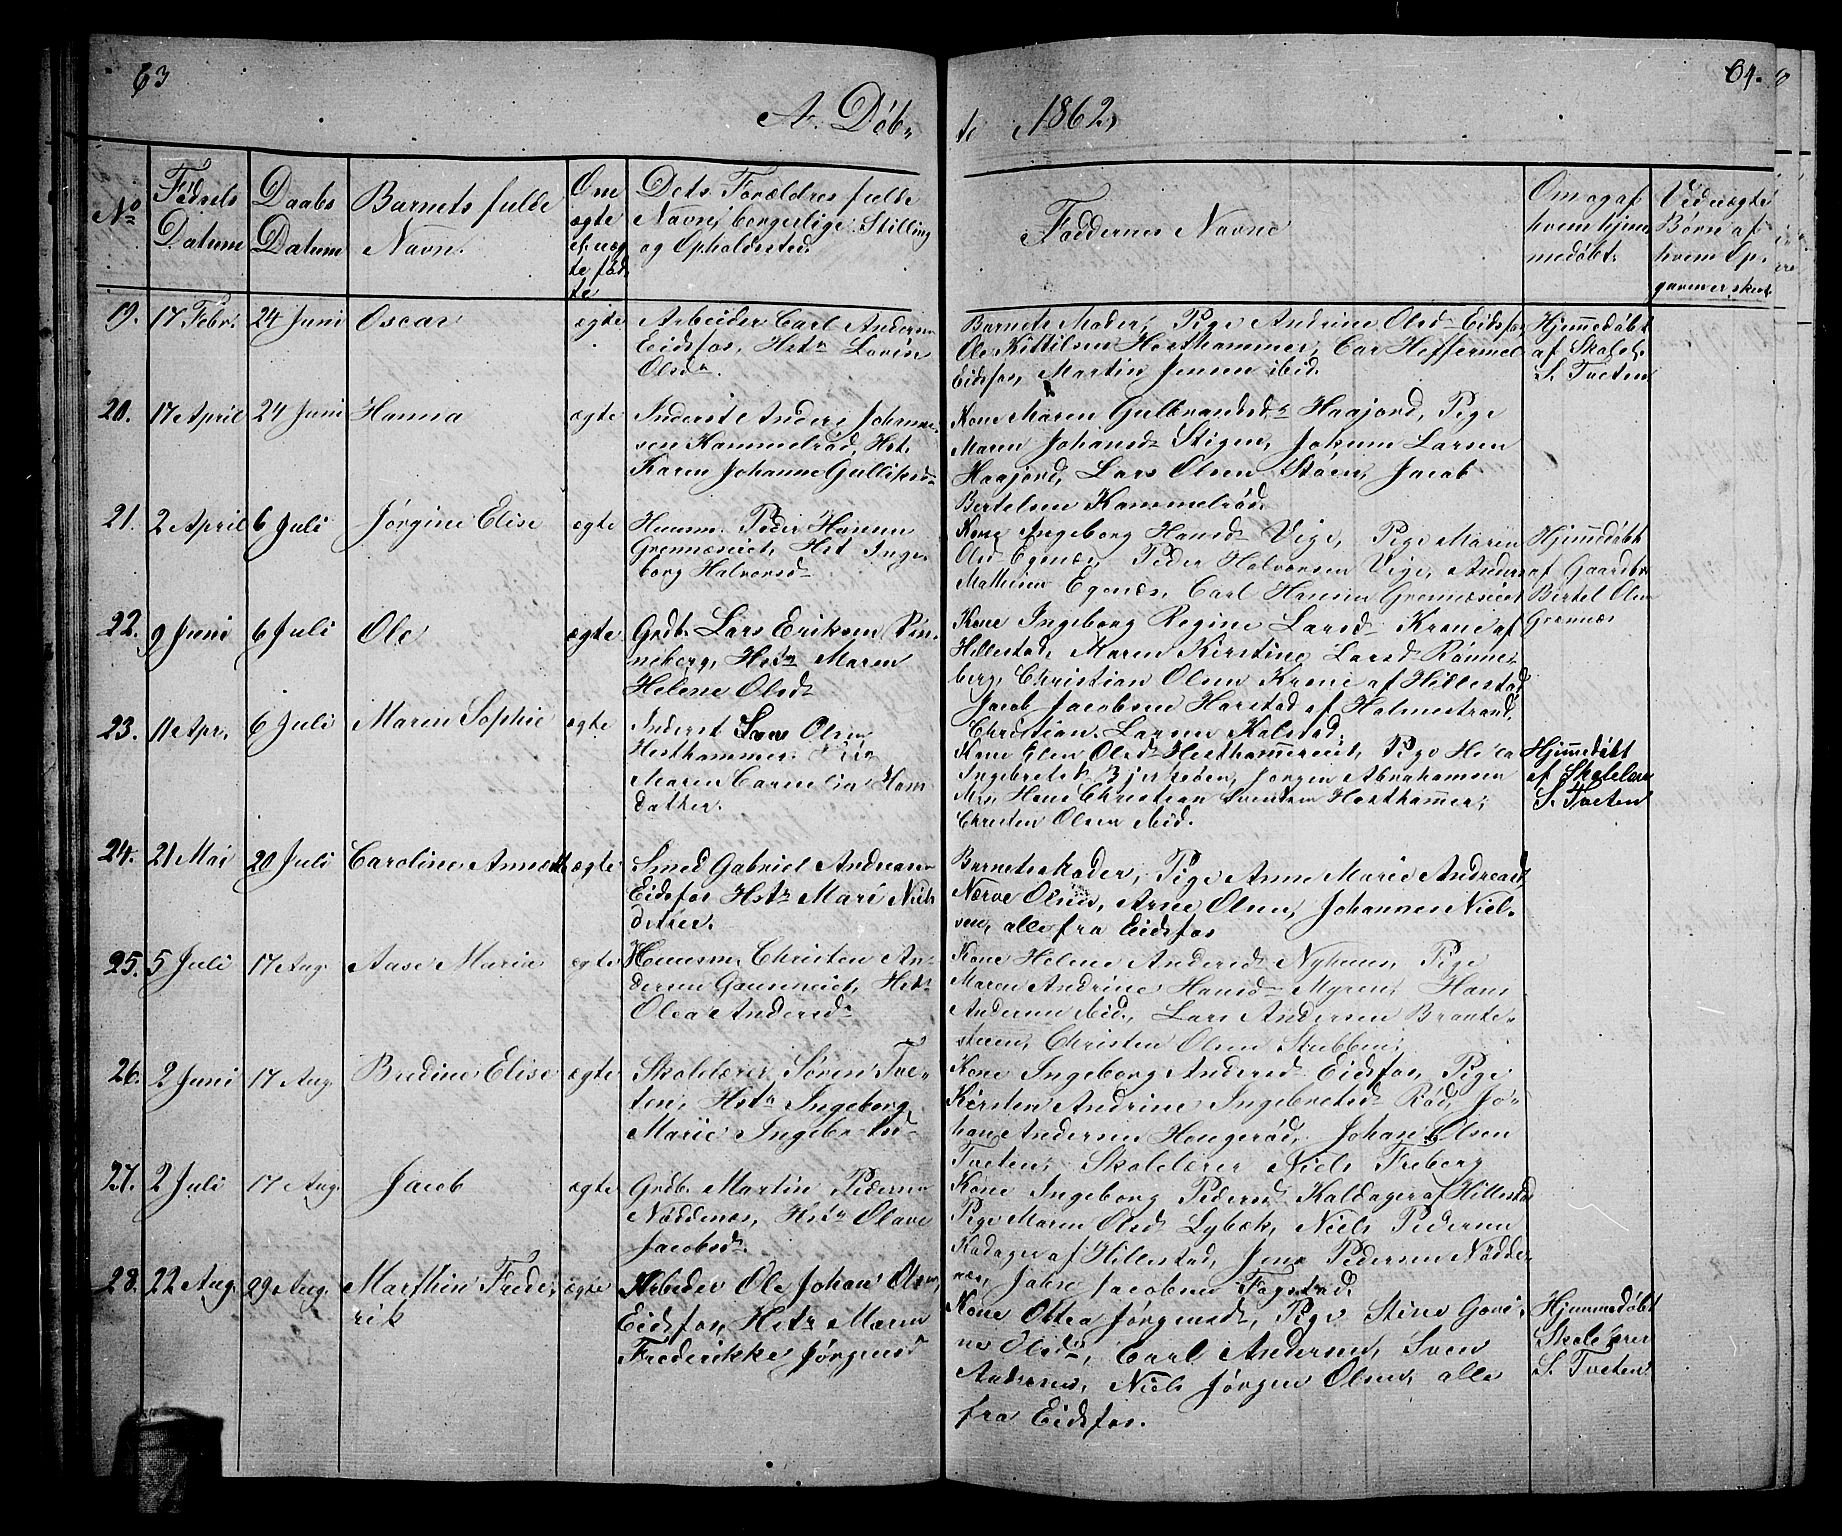 63
A. Døb-
te 1862,
64.
No
Fødsels
Datum
Daabs
Datum
Barnets fulde
Navn.
Om
ægte
el. uæg
te fød
te
Dets Forældres fulde
Navne, borgerlige Stilling
og Opholdssted.
Faddernes Navne
Om og af
hvem hjem
medøbt.
Ved uægte
Børn af
hvem Op-
19. 17 Febr. 24 Juni Oscar ægte
Arbeider Carl Anders
Eidsfos, Hstr Lovise
Olsdr.
Barnets Moder, Pige Andrine Olsd Eidsfos
Ole Kittilsen Hesthammer,
Eidsfos, Martin Jensen ibid.
Hjemmedøbt
af Skolel.
S. Tveten
20. 17 April 24 Juni Hanna ægte
Inderst Anders Johanne-
sen Kammelrød, Hst.
Karen Johanne Gulliksd
Kone Maren Gulbrandsdr Haajord, Pige
Maren Johansdr Stigen, Jokum Larsen
Haajord, Lars Olsen Støen, Jacob
Bertelsen Kammelrød.
21. 2 April 6 Juli Jørgine Elise ægte
Huusm. Peder Hansen
Grennæseiet, Hst Inge-
borg Halvorsdr
Kone Ingeborg Hansdr Vige, Pige Maren
Olsd Egenæs, Peder Halvorsen Vige, Anders
Mathisen Egenæs, Carl Hansen Grennæseiet
Hjemmedøbt
af Gaardbr.
Bertel Olsen
Grennæs
22. 9 Juni 6 Juli Ole ægte
Grdb. Lars Eriksen Røn-
neberg, Hstr Maren
Helene Olsdr
Kone Ingeborg Regine Larsdr Krone af
Hillestad, Maren Kirstine Larsdr Rønne-
berg, Christian Olsen Krone af Hillestad
Jacob Jacobsen Harstad af Holmestrand,
Christian Larsen Kalstad.
23. 11 Apr. 6 Juli Maren Sophie ægte
Inderst Olsen
Hesthammer
Maren Carnelia Hans
datter.
Kone Elen Olsd Hesthammereiet, Pige
Ingebretsd Bjerkeden, Jørgen Abrahamsen
Hans Christian Svendsen Hesthammer,
Christen Olsen ibid.
Hjemmedøbt
af Skolelærer
S. Tveten
24. 21 Mai 20 Juli Caroline Annette ægte
Smed Gabriel Andreasen
Eidsfos Hstr Mari Niels
datter.
Barnets Moder, Pige Anne Marie Andreasd
Nærve Olsen, Arne Olsen, Johannes Niel-
sen, alle fra Eidsfos
25. 5 Juli 17 Aug. Aase Maria ægte
Huusm. Christen An-
dersen Hst
Olea Andersdr
Kone Helene Andersd Nyhuus, Pige
Maren Andrine Hansdr Myren, Hans
Andersen ibid., Lars Andersen Brante-
steen, Christen Olsen Stubben.
26. 2 Juni 17 Aug. Bredine Elise ægte
Skolelærer Søren Tve-
ten, Hstr Ingeborg
Marie Ingebretsd
Kone Ingeborg Andersd Eidsfos, Pige
Kirsten Andrine Ingebretsd Rød, Jo-
han Andersen Hougerød, Johan Olsen
Tveten, Skolelærer Niels Freberg
27. 2 Juli 17 Aug. Jacob ægte
Grdb. Martin Pedersen
Nøddenæs, Hstr Olave
Jacobsdr.
Kone Ingeborg Pedersd Kaldager af Hillestad
Pige Maren Olsd Lybæk, Niels Pedersen
Kadager af Hillestad, Jens Pedersen Nødde-
næs, Jacobsen Fogstad.
28. 22 Aug. 29 Aug. Marthin Frede-
rik ægte
Arbeider Ole Johan Olsen,
Eidsfos, Hstr Maren
Frederikke Jørgensd
Kone Ottea Jørgensd, Pige Stine Gori-
ne Olsdr, Carl Andersen, Sven
Andersen, Niels Jørgen Olsen, alle
fra Eidsfos.
Hjemmedøbt
Skolelærer
S. Tveten